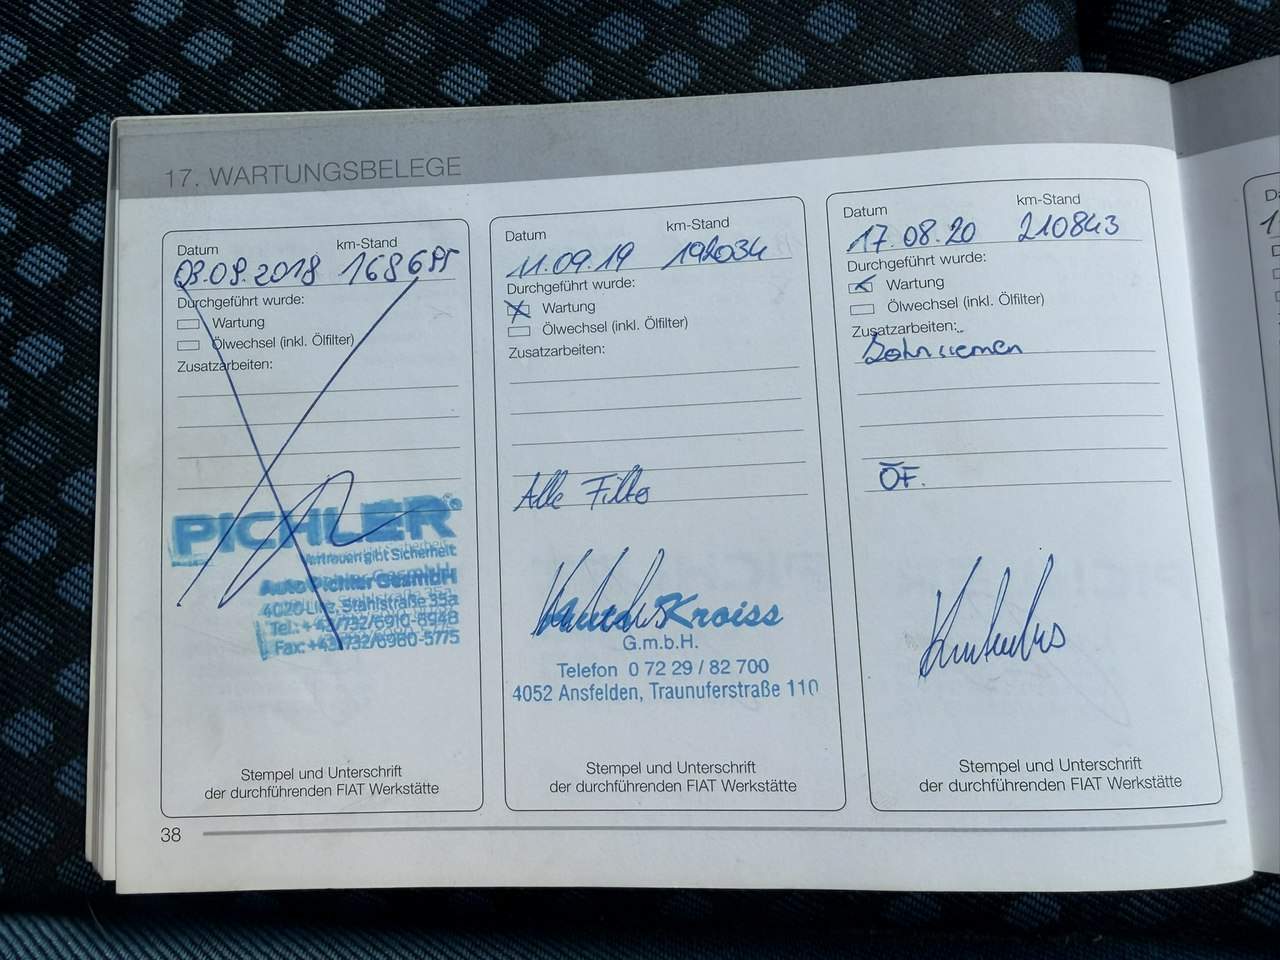 17. WARTUNGSBELEGE
Datum km-Stand
03.09.2018
Durchgeführt wurde:
Wartung
Ölwechsel (inkl. Ölfilter)
Zusatzarbeiten:
PICHLER®
Vertrauen gibt Sicherheit
Auto Pichler GesmbH
4020 Linz, Stahlstraße 35a
Tel.: +43/732/6910-8948
Fax: +43/732/6980-5775
Stempel und Unterschrift
der durchführenden FIAT Werkstätte
Datum km-Stand
11.09.19 192034
Durchgeführt wurde:
Wartung
Ölwechsel (inkl. Ölfilter)
Zusatzarbeiten:
Alle Filter
Kroiss
G.m.b.H.
Telefon 0 72 29 / 82 700
4052 Ansfelden, Traunuferstraße 110
Stempel und Unterschrift
der durchführenden FIAT Werkstätte
Datum km-Stand
17.08.20 210843
Durchgeführt wurde:
Wartung
Ölwechsel (inkl. Ölfilter)
Zusatzarbeiten:
ÖF.
Stempel und Unterschrift
der durchführenden FIAT Werkstätte
38